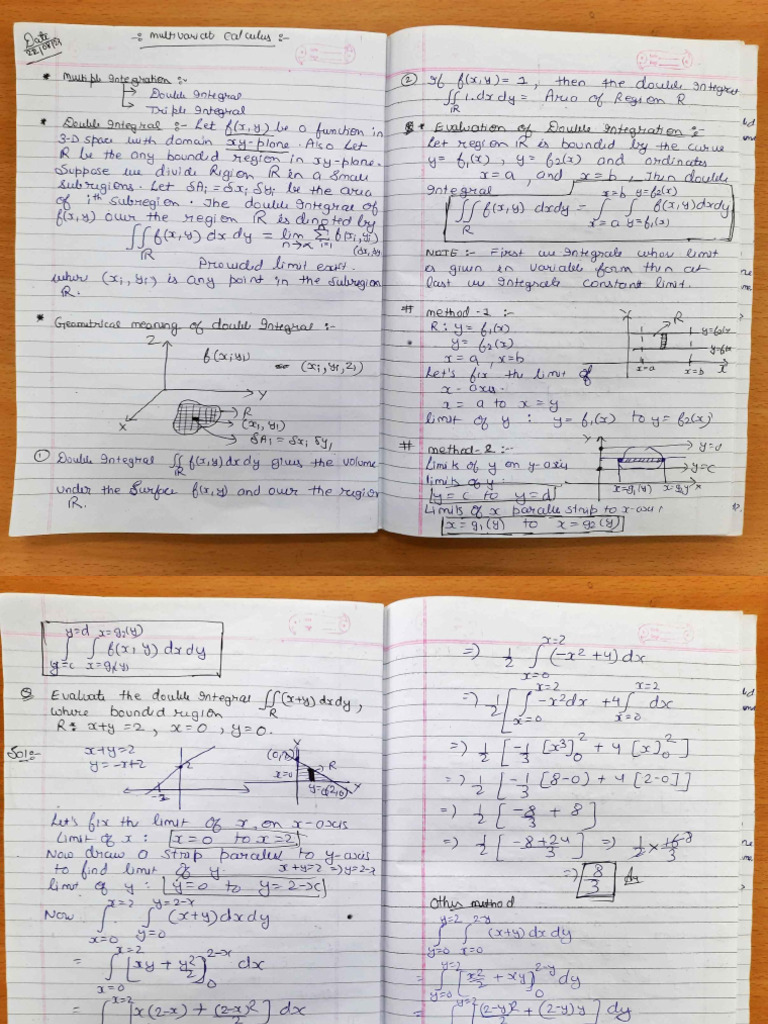 Date
-: multivariat calculus :-
* Multiple Integration :-
Double Integral
Triple Integral
* Double Integral :- Let f(x,y) be a function in
3-D space with domain xy-plane. Also let
R be the any bounded region in xy-plane.
Suppose we divide Rigion R in a small
subregions. Let δAi = δxi δyi be the area
of ith subregion. The double Integral of
f(x,y) over the region R is denoted by
∬R f(x,y) dx dy = lim n→∞ Σ i=1 n f(xi,yi)
Provided limit exist.
where (xi, yi) is any point in the subregion
R.
* Geometrical meaning of double Integral :-
Z
f(xi,yi)
(xi, yi, zi)
Y
X
R
(xi, yi)
δAi = δxi δyi
① Double Integral ∬R f(x,y) dx dy gives the volume
under the Surface f(x,y) and over the region
R.
② If f(x,y) = 1, then the double Integral
∬R 1.dx dy = Area of Region R
* Evaluation of Double Integration :-
Let region R is bounded by the curve
y= f1(x), y= f2(x) and ordinates
x=a, and x=b, Then double
Integral
∬R f(x,y) dxdy = ∫ x=a x=b ∫ y=f1(x) y=f2(x) f(x,y)dxdy
NOTE :- First we Integrals whos limit
a given in variable form then at
last we Integrals constant limit.
# method-1 :-
R: y= f1(x)
y= f2(x)
x=a, x=b
Let's fix the limit of
x-axis.
x=a to x=y
limit of y : y=f1(x) to y=f2(x)
Y
R
y=f2(x)
y=f1(x)
x=a
x=b
X
# method-2 :-
Limits of y on y-axis
limits of y:
y=c to y=d
Limits of x parallel strip to x-axis
x=g1(y) to x=g2(y)
Y
y=d
y=c
x=g1(y)
x=g2y
X
∫ y=c y=d ∫ x=g1(y) x=g2(y) f(x,y) dxdy
Q Evaluate the double Integral ∬R (x+y) dxdy,
where bounded region
R: x+y=2, x=0, y=0.
Sol:-
x+y=2
y=-x+2
2
Y
x=0
R
X
Let's fix the limit of x on x-axis
Limit of x: x=0 to x=2
Now draw a strap parallel to y-axis
to find limit of y. x+y=2 ⇒ y=2-x
limit of y: y=0 to y=2-x
Now ∫ x=0 x=2 ∫ y=0 y=2-x (x+y) dxdy
= ∫ x=0 x=2 [xy + y²/2] 0 2-x dx
= ∫ x=2 [x(2-x) + (2-x)²/2] dx
⇒ 1/2 ∫ x=0 x=2 (-x²+4) dx
⇒ 1/2 [∫ x=0 x=2 -x²dx + 4∫ x=0 x=2 dx
⇒ 1/2 [-1/3 [x³] 0 2 + 4 [x] 0 2]
⇒ 1/2 [-1/3 [8-0] + 4 [2-0]]
⇒ 1/2 [-8/3 + 8]
⇒ 1/2 [-8+24/3] ⇒ 1/2 × 16 8/3
⇒ 8/3
Other method
∫ y=0 y=2 ∫ x=0 2-y (x+y) dx dy
= ∫ y=0 y=2 [x²/2 + xy] 0 2-y dy
= ∫ y=2 [(2-y)²/2 + (2-y)y] dy